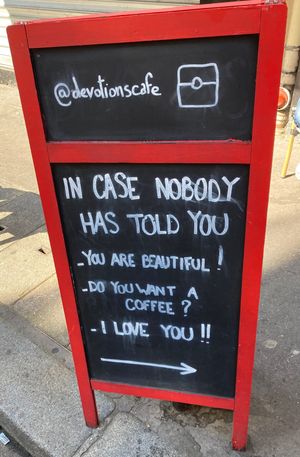 @devotionscafe
IN CASE NOBODY
HAS TOLD YOU
-YOU ARE BEAUTIFUL!
-DO YOU WANT A
COFFEE?
-I LOVE YOU!!